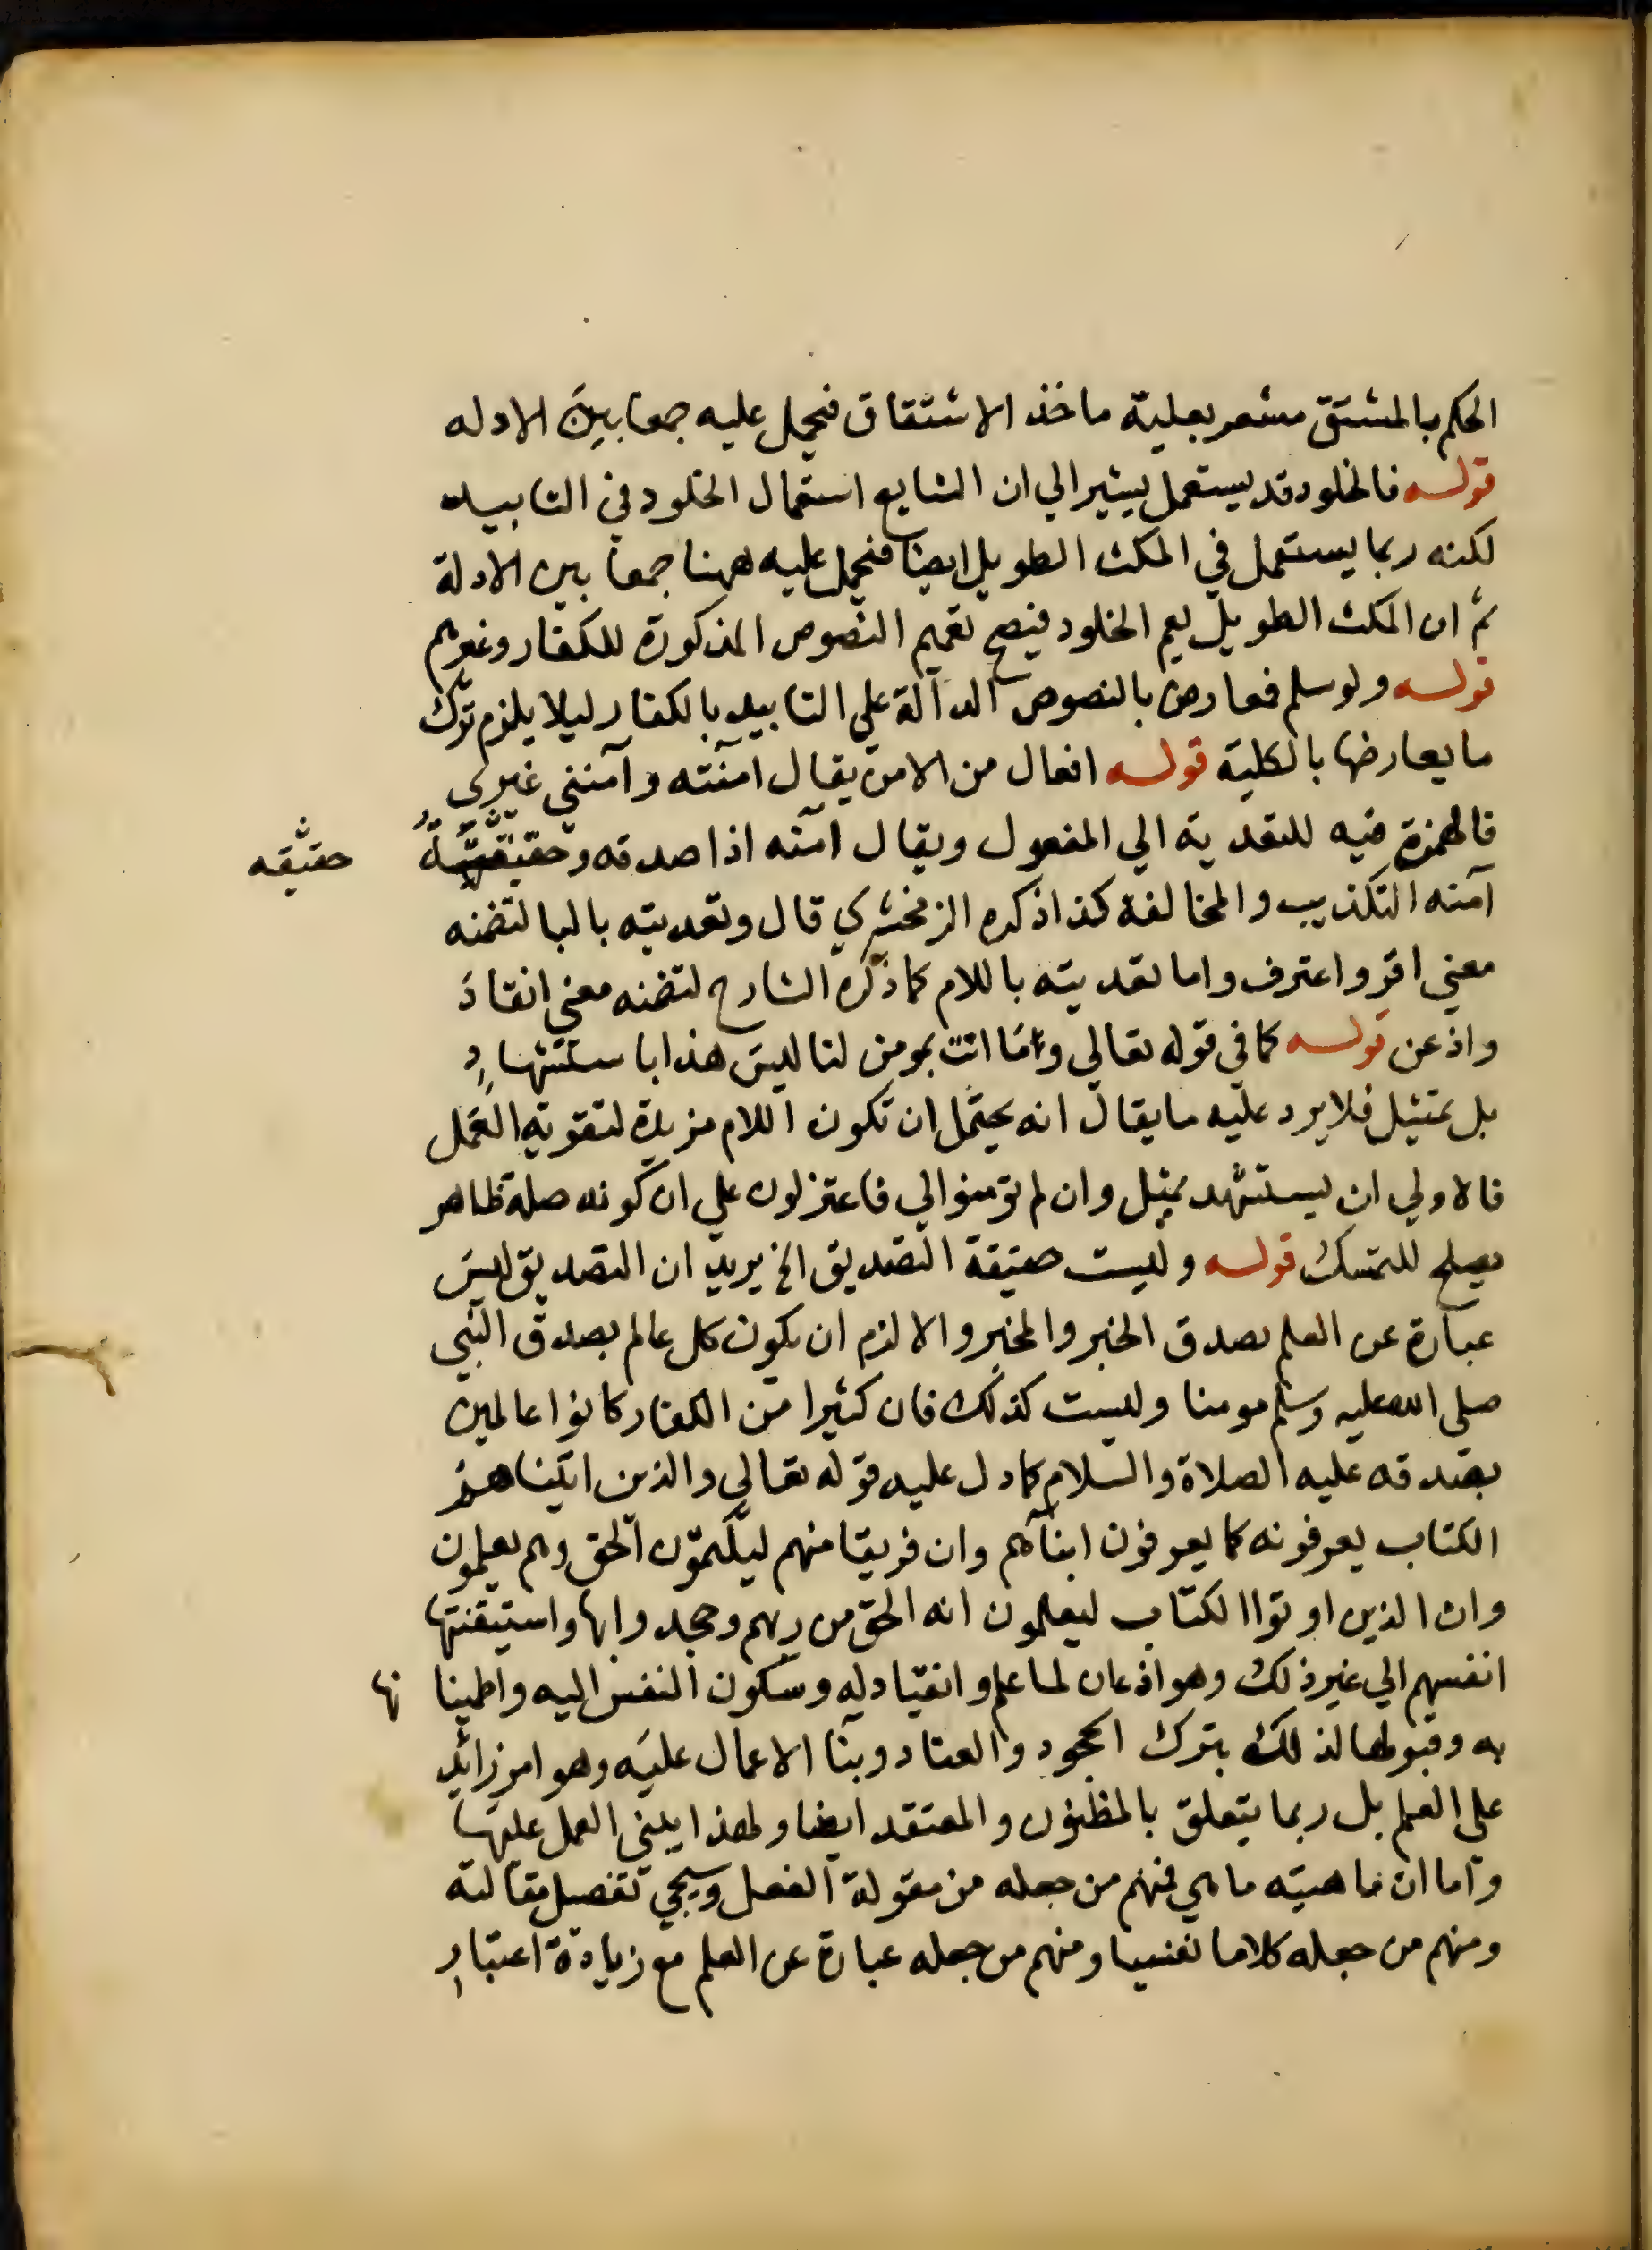 الحكم بالمشتق مشعر بعلية ماخذ الاشتقاق فيحمل عليه جمعا بين الادله
قوله فالخلود قد يستعمل يشير الي ان الشايع استعمال الخلود في التابيد
لكنه ربما يستعمل في المكث الطويل ايضا فيحمل عليه ههنا جمعا بين الادلة
ثم ان المكث الطويل يعم الخلود فيصح تعميم النصوص المذكورة للكفار وغيرهم
قوله ولو سلم فمعارض بالنصوص الدالة علي التابيد بالكفار ليلا يلزم ترك
ما يعارضها بالكلية قوله افعال من الامن يقال امنته وآمنني غيري
فالهمزة فيه للتعدية الي المفعول ويقال آمنه اذا صدقه وحقيقته حقيقه
آمنه التكذيب والمخالفة كذا ذكره الزمخشري قال وتعديته بالبا لتضمنه
معني اقر واعترف واما تعديته باللام كما ذكره الشارح لتضمنه معني انقاد
واذعن قوله كما في قوله تعالي وما انت بمومن لنا ليس هذا باستشهاد
بل تمثيل فلا يرد عليه ما يقال انه يحتمل ان تكون اللام مزيدة لتقوية العمل
فالاولي ان يستشهد بمثل وان لم تومنوا لي فاعتزلون علي ان كونه صلة ظاهر
يصلح للتمسك قوله وليست حقيقة التصديق الخ يريد ان التصديق ليس
عبارة عن العلم بصدق الخبر والمخبر والا لزم ان يكون كل عالم بصدق النبي
صلي الله عليه وسلم مومنا وليست كذلك فان كثيرا من الكفار كانوا عالمين
بصدقه عليه الصلاة والسلام كما دل عليه قوله تعالي والذين اتيناهم
الكتاب يعرفونه كما يعرفون ابناهم وان فريقا منهم ليكتمون الحق وهم يعلمون
وان الذين اوتوا الكتاب ليعلمون انه الحق من ربهم وجحدوا بها واستيقنتها
انفسهم الي غير ذلك وهو اذعان لما علم وانقياد له وسكون النفس اليه واطمينا نها
به وقبولها لذلك بترك الجحود والعناد وبنا الاعمال عليه وهو امر زائد
علي العلم بل ربما يتعلق بالمظنون والمعتقد ايضا ولهذا يبني العمل عليها
واما ان ماهيته ما هي فمنهم من جعله من مقولة الفعل وسيجي تفصيل مقالته
ومنهم من جعله كلاما نفسيا ومنهم من جعله عبارة عن العلم مع زيادة اعتبار